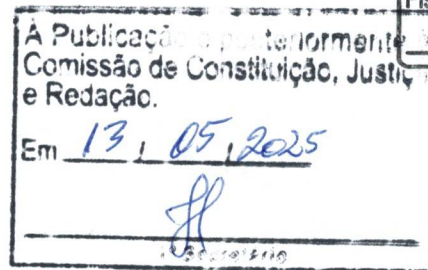 À Publicação e posteriormente à
Comissão de Constituição, Justiça
e Redação.
Em 13 / 05 / 2025
1º Secretário